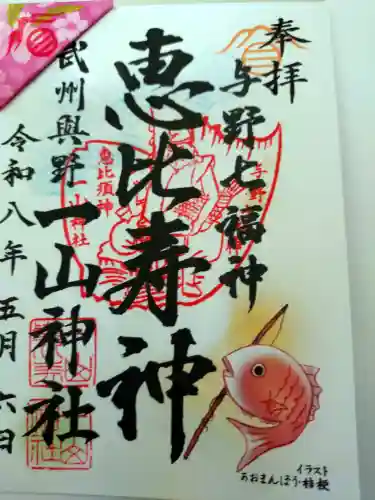 奉拝
与野七福神
恵比寿神
恵比須神
一山神社
武州與野
一山神社
令和八年五月六日
イラスト
あおまんぼう・桔梗